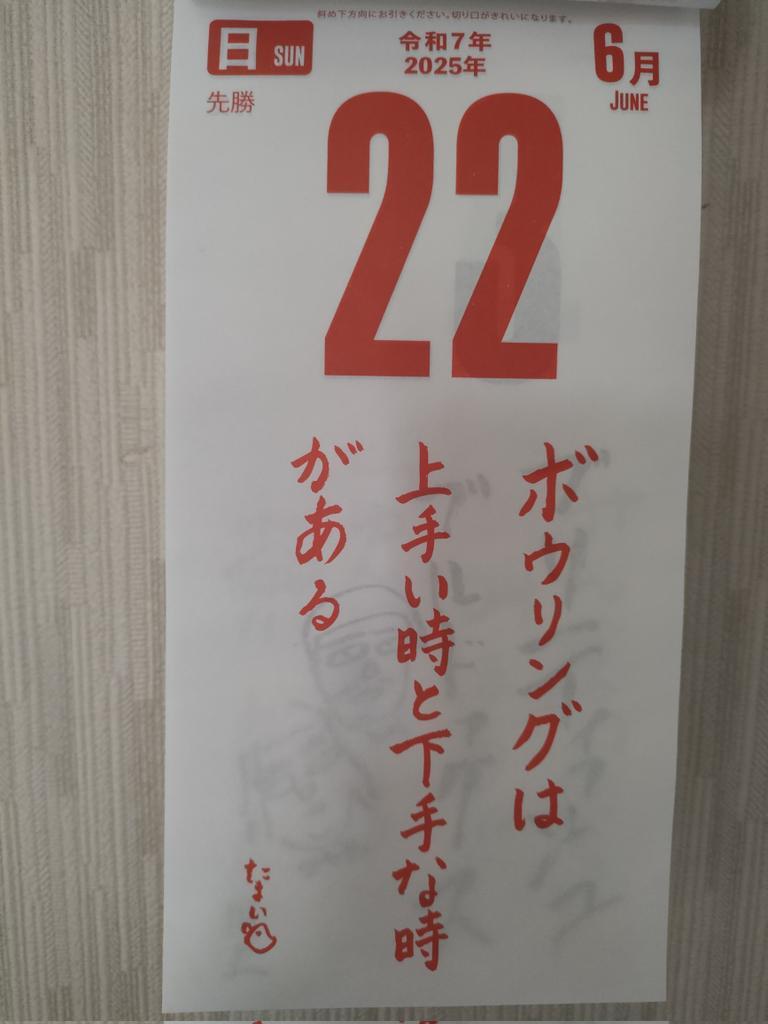 斜め下方向にお引きください。切り口がきれいになります。
日 SUN
令和7年
2025年
6月
JUNE
先勝
22
ボウリングは
上手い時と下手な時
がある
たまい